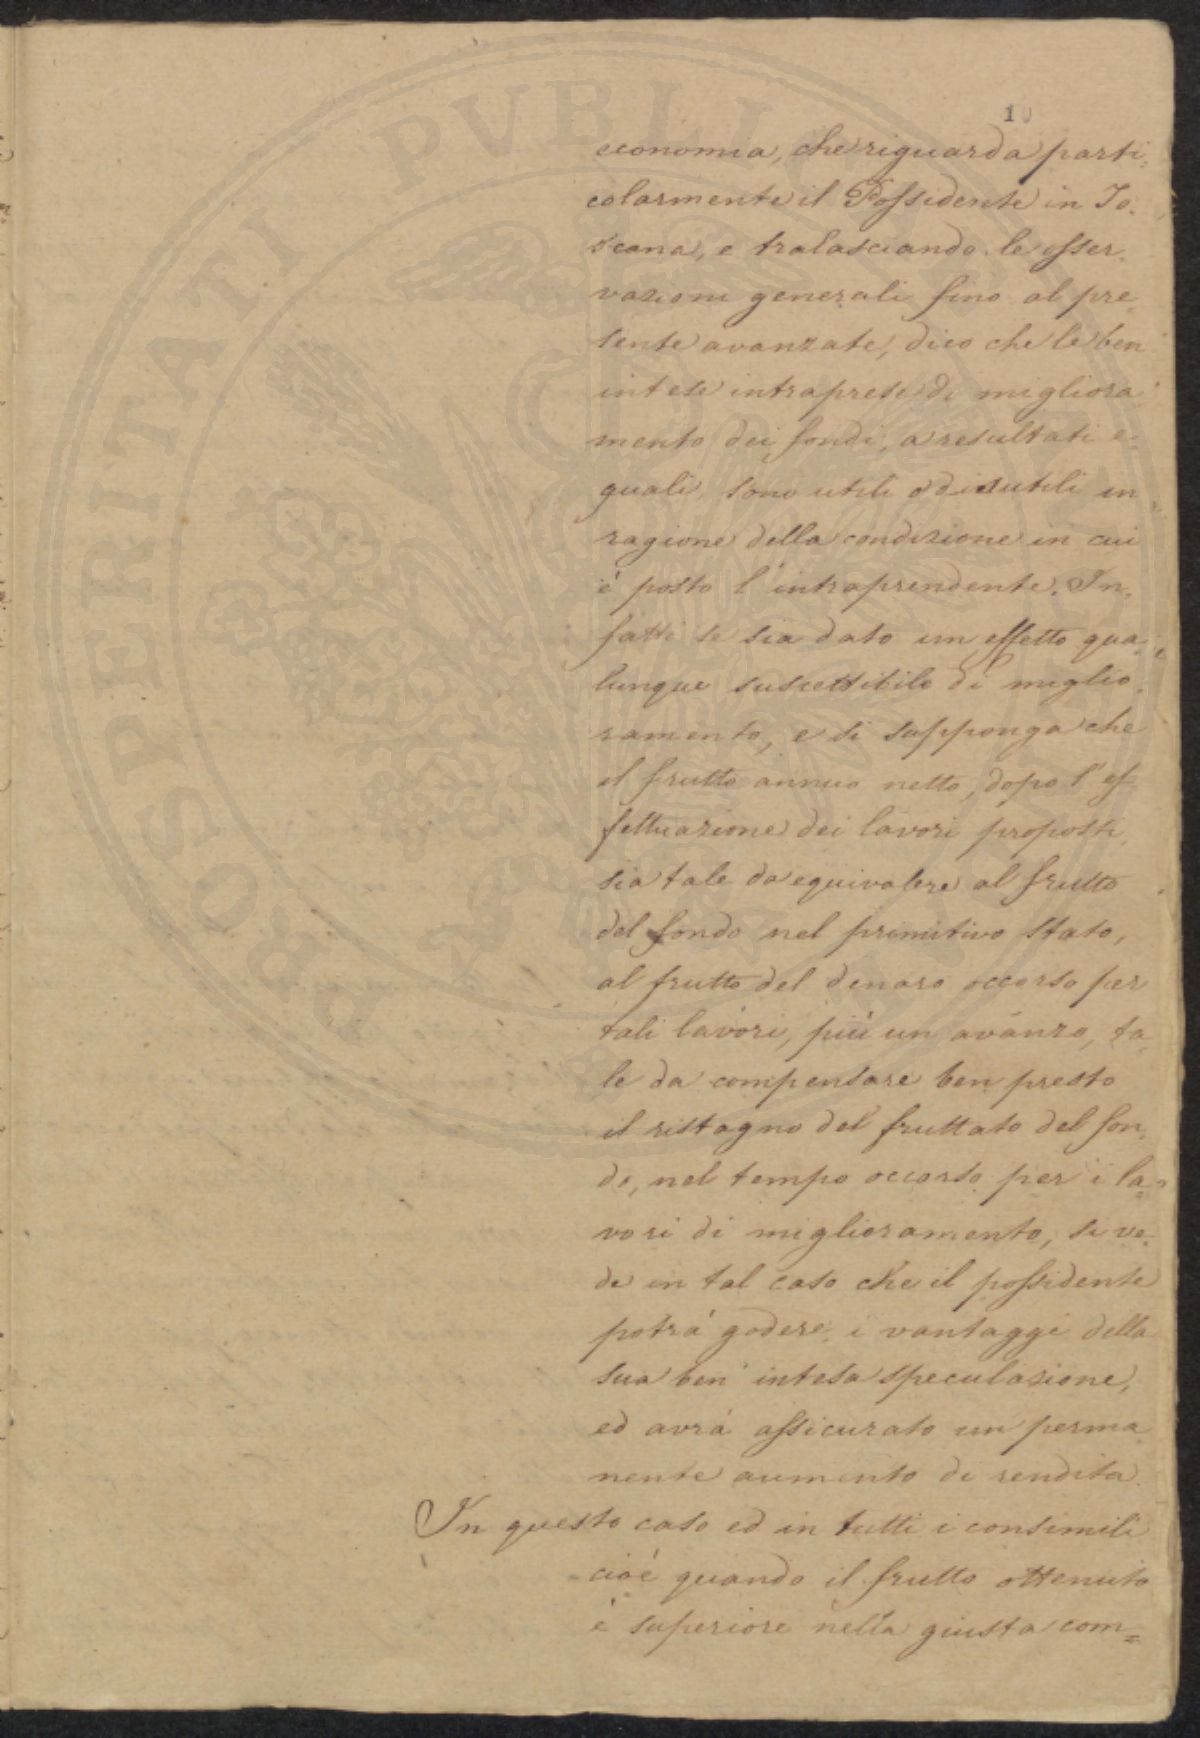 10
economia, che riguarda parti=
colarmente il Possidente in To=
scana, e tralasciando le osser=
vazioni generali fino al pre
sente avanzate, dico che le ben
intese intraprese di migliora
mento dei fondi, a resultati e=
guali, sono utili o disutili in
ragione della condizione in cui
è posto l'intraprendente. In=
fatti se sia dato un effetto qua=
lunque suscettibile di miglio=
ramento, e si supponga che
il frutto annuo netto, dopo l'ef
fettuazione dei lavori proposti,
sia tale da equivalere al frutto
del fondo nel primitivo stato,
al frutto del denaro occorso per
tali lavori, più un avanzo, ta=
le da compensare ben presto
il ristagno del fruttato del fon=
do, nel tempo occorso per i la=
vori di miglioramento, si ve=
de in tal caso che il possidente
potrà godere i vantaggi della
sua ben' intesa speculazione,
ed avrà assicurato un perma
nente aumento di rendita.
In questo caso ed in tutti i consimili
cioè quando il frutto ottenuto
è superiore nella giusta com=
PROSPERITATI PVBLICAE